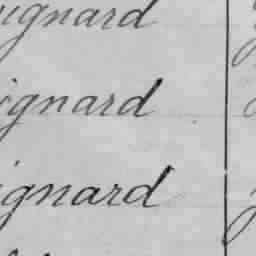 ignard
ignard
ignard